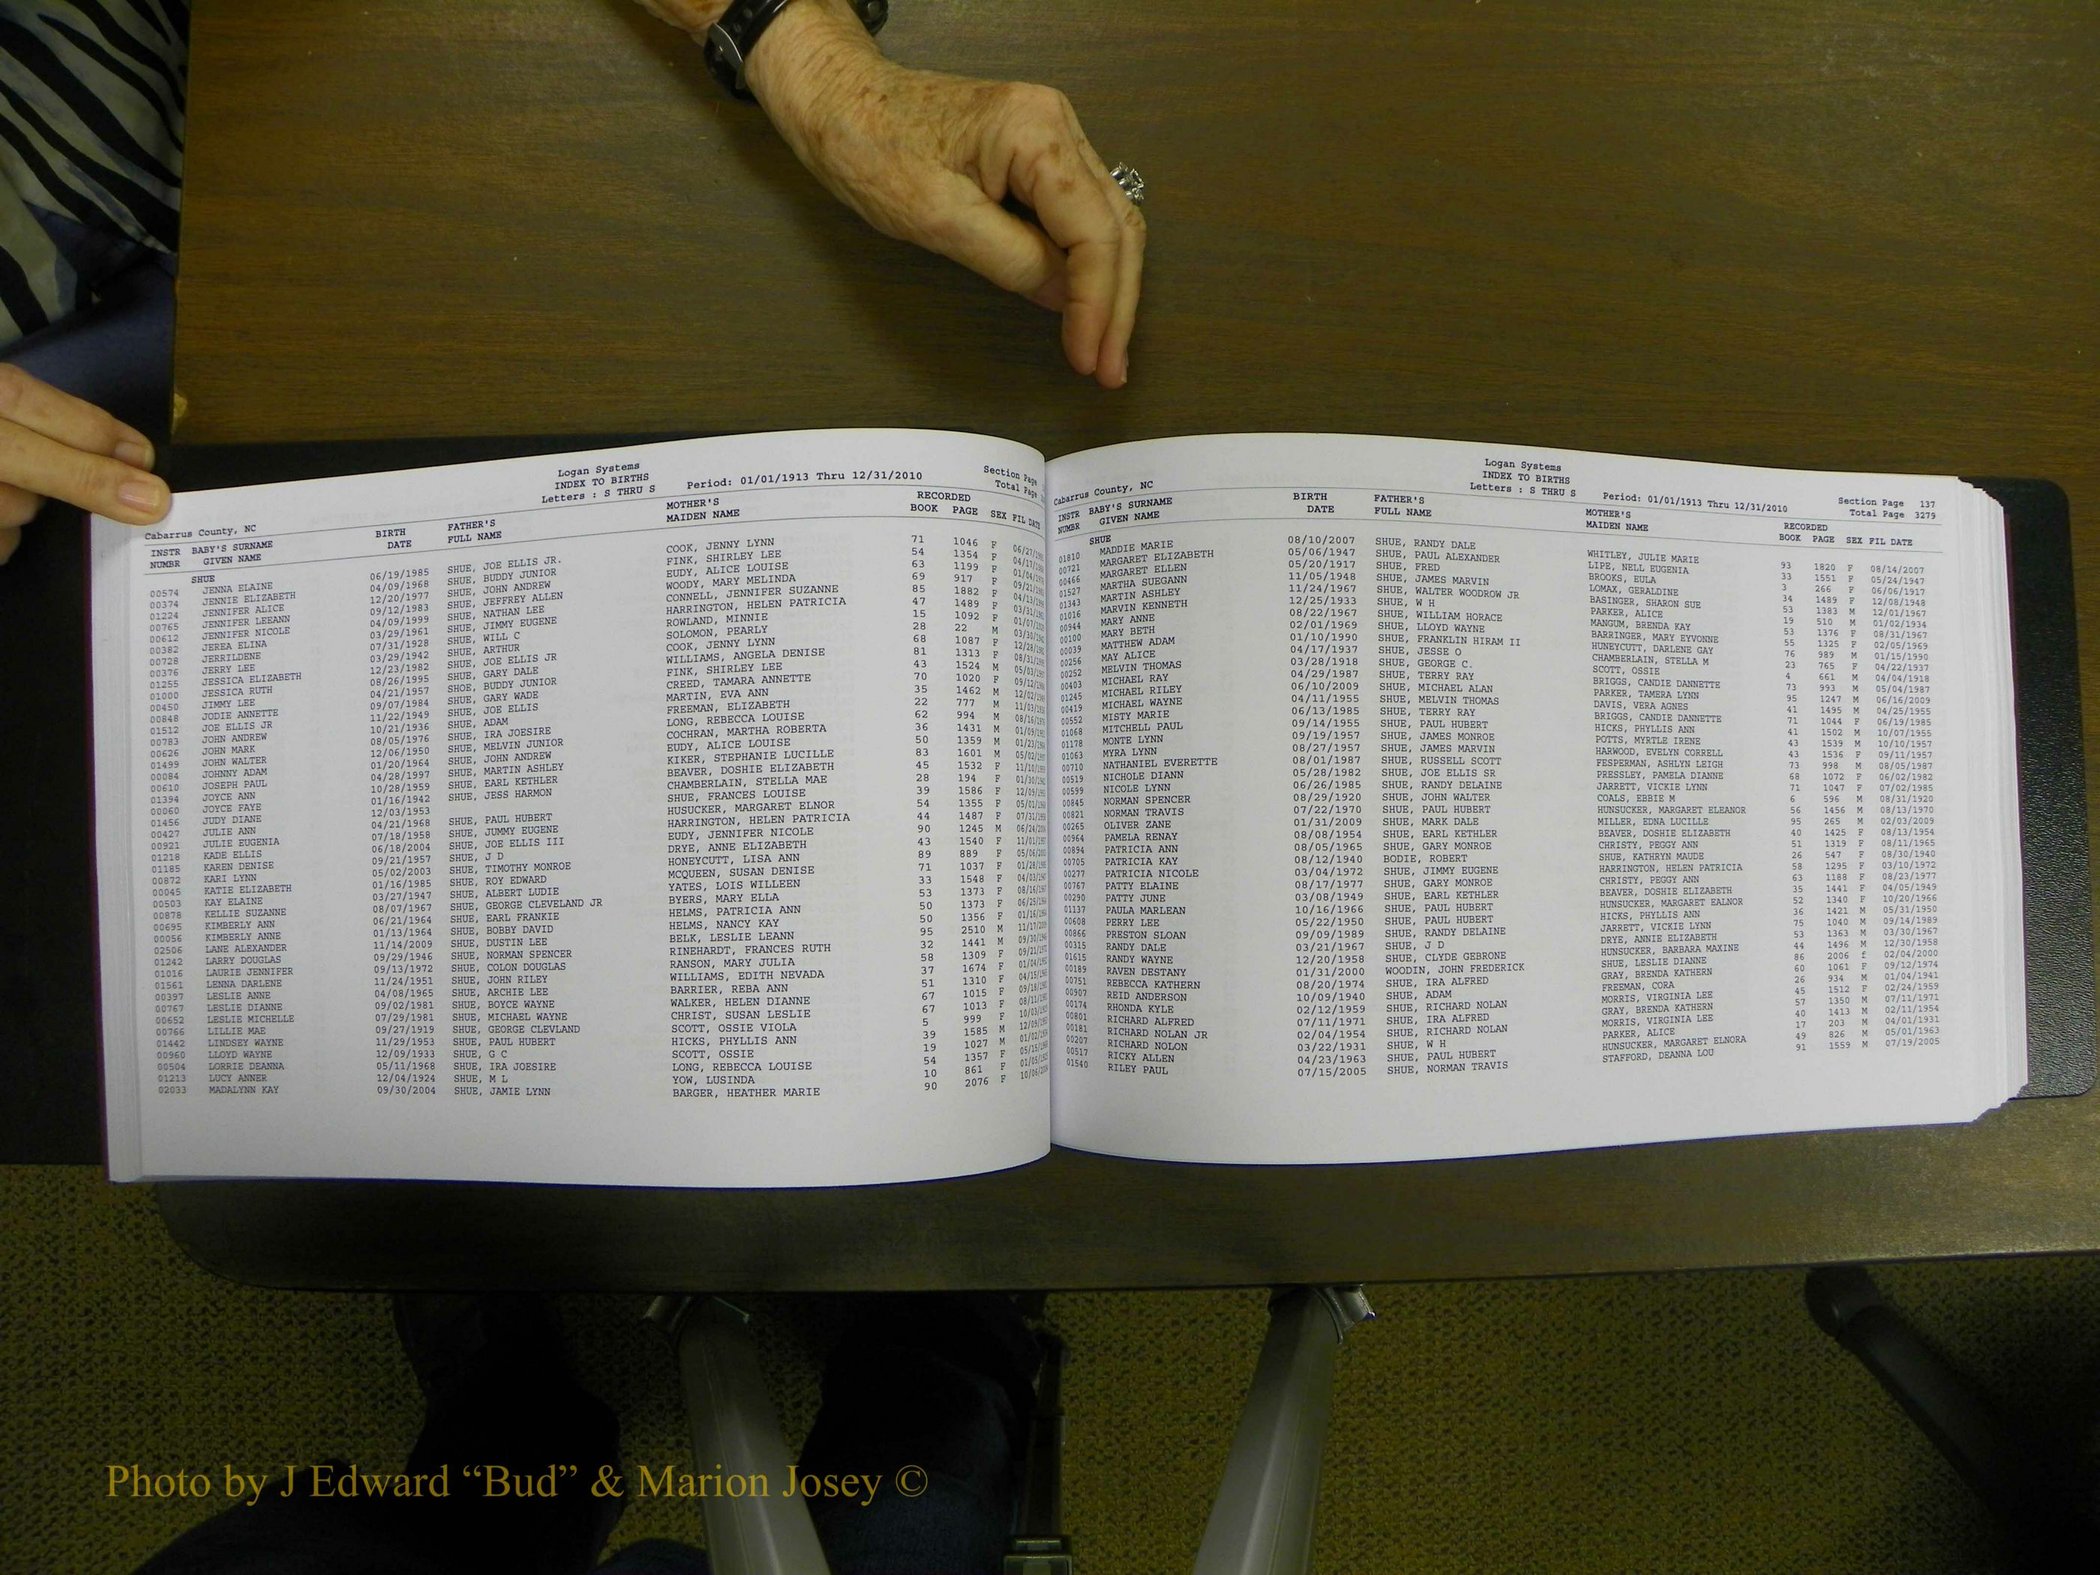 Logan Systems
INDEX TO BIRTHS
Letters : S THRU S Period: 01/01/1913 Thru 12/31/2010
Section Page
Total Page
Cabarrus County, NC
INSTR NUMBR BABY'S SURNAME GIVEN NAME BIRTH DATE FATHER'S FULL NAME MOTHER'S MAIDEN NAME RECORDED BOOK PAGE SEX FIL DATE
SHUE
00574 JENNA ELAINE 06/19/1985 SHUE, JOE ELLIS JR. COOK, JENNY LYNN 71 1046 F
00374 JENNIE ELIZABETH 04/09/1968 SHUE, BUDDY JUNIOR FINK, SHIRLEY LEE 54 1354 F
01224 JENNIFER ALICE 12/20/1977 SHUE, JOHN ANDREW EUDY, ALICE LOUISE 63 1199 F
00765 JENNIFER LEEANN 09/12/1983 SHUE, JEFFREY ALLEN WOODY, MARY MELINDA 69 917 F
00612 JENNIFER NICOLE 04/09/1999 SHUE, NATHAN LEE CONNELL, JENNIFER SUZANNE 85 1882 F
00382 JEREA ELINA 03/29/1961 SHUE, JIMMY EUGENE HARRINGTON, HELEN PATRICIA 47 1489 F
00728 JERRILDENE 07/31/1928 SHUE, WILL C ROWLAND, MINNIE 15 1092 F
00376 JERRY LEE 03/29/1942 SHUE, ARTHUR SOLOMON, PEARLY 28 22 M
01255 JESSICA ELIZABETH 12/23/1982 SHUE, JOE ELLIS JR COOK, JENNY LYNN 68 1087 F
01000 JESSICA RUTH 08/26/1995 SHUE, GARY DALE WILLIAMS, ANGELA DENISE 81 1313 F
00450 JIMMY LEE 04/21/1957 SHOE, BUDDY JUNIOR FINK, SHIRLEY LEE 43 1524 M
00848 JODIE ANNETTE 09/07/1984 SHUE, GARY WADE CREED, TAMARA ANNETTE 70 1020 F
01512 JOE ELLIS JR 11/22/1949 SHUE, JOE ELLIS MARTIN, EVA ANN 35 1462 M
00783 JOHN ANDREW 10/21/1936 SHUE, ADAM FREEMAN, ELIZABETH 22 777 M
00626 JOHN MARK 08/05/1976 SHUE, IRA JOESIRE LONG, REBECCA LOUISE 62 994 M
01499 JOHN WALTER 12/06/1950 SHUE, MELVIN JUNIOR COCHRAN, MARTHA ROBERTA 36 1431 M
00084 JOHNNY ADAM 01/20/1964 SHUE, JOHN ANDREW EUDY, ALICE LOUISE 50 1359 M
00610 JOSEPH PAUL 04/28/1997 SHUE, MARTIN ASHLEY KIKER, STEPHANIE LUCILLE 83 1601 M
01394 JOYCE ANN 10/28/1959 SHUE, EARL KETHLER BEAVER, DOSHIE ELIZABETH 45 1532 F
00060 JOYCE FAYE 01/16/1942 SHUE, JESS HARMON CHAMBERLAIN, STELLA MAE 28 194 F
01456 JUDY DIANE 12/03/1953 SHUE, FRANCES LOUISE 39 1586 F
00427 JULIE ANN 04/21/1968 SHUE, PAUL HUBERT HUSUCKER, MARGARET ELNOR 54 1355 F
00921 JULIE EUGENIA 07/18/1958 SHUE, JUMMY EUGENE HARRINGTON, HELEN PATRICIA 44 1487 F
01218 KADE ELLIS 06/18/2004 SHUE, JOE ELLIS III EUDY, JENNIFER NICOLE 90 1245 M
01185 KAREN DENISE 09/21/1957 SHUE, J D DRYE, ANNE ELIZABETH 43 1540 F
00872 KARI LYNN 05/02/2003 SHUE, TIMOTHY MONROE HONEYCUTT, LISA ANN 89 889 F
00045 KATIE ELIZABETH 01/16/1985 SHUE, ROY EDWARD MCQUEEN, SUSAN DENISE 71 1037 F
00503 KAY ELAINE 03/27/1947 SHUE, ALBERT LUDIE YATES, LOIS WILLEEN 33 1548 F
00878 KELLIE SUZANNE 08/07/1967 SHUE, GEORGE CLEVELAND JR BYERS, MARY ELLA 53 1373 F
00695 KIMBERLY ANN 06/21/1964 SHUE, EARL FRANKIE HELMS, PATRICIA ANN 50 1373 F
00056 KIMBERLY ANNE 01/13/1964 SHUE, BOBBY DAVID HELMS, NANCY KAY 50 1356 F
02506 LANE ALEXANDER 11/14/2009 SHUE, DUSTIN LEE BELK, LESLIE LEANN 95 2510 M
01242 LARRY DOUGLAS 09/29/1946 SHUE, NORMAN SPENCER RINEHARDT, FRANCES RUTH 32 1441 M
01016 LAURIE JENNIFER 09/13/1972 SHUE, COLON DOUGLAS RANSON, MARY JULIA 58 1309 F
01561 LENNA DARLENE 11/24/1951 SHUE, JOHN RILEY WILLIAMS, EDITH NEVADA 37 1674 F
00397 LESLIE ANNE 04/08/1965 SHUE, ARCHIE LEE BARRIER, REBA ANN 51 1310 F
00767 LESLIE DIANNE 09/02/1981 SHUE, BOYCE WAYNE WALKER, HELEN DIANNE 67 1015 F
00652 LESLIE MICHELLE 07/29/1981 SHUE, MICHAEL WAYNE CHRIST, SUSAN LESLIE 67 1013 F
00766 LILLIE MAE 09/27/1919 SHUE, GEORGE CLEVLAND SCOTT, OSSIE VIOLA 5 999 F
01442 LINDSEY WAYNE 11/29/1953 SHUE, PAUL HUBERT HICKS, PHYLLIS ANN 39 1585 M
00960 LLOYD WAYNE 12/09/1933 SHUE, G C SCOTT, OSSIE 19 1027 M
00504 LORRIE DEANNA 05/11/1968 SHUE, IRA JOESIRE LONG, REBECCA LOUISE 54 1357 F
01213 LUCY ANNER 12/04/1924 SHUE, M L YOW, LUSINDA 10 861 F
02033 MADALYNN KAY 09/30/2004 SHUE, JAMIE LYNN BARGER, HEATHER MARIE 90 2076 F
Logan Systems
INDEX TO BIRTHS
Letters : S THRU S Period: 01/01/1913 Thru 12/31/2010
Section Page 137
Total Page 3279
Cabarrus County, NC
INSTR NUMBR BABY'S SURNAME GIVEN NAME BIRTH DATE FATHER'S FULL NAME MOTHER'S MAIDEN NAME RECORDED BOOK PAGE SEX FIL DATE
SHUE
01810 MADDIE MARIE 08/10/2007 SHUE, RANDY DALE WHITLEY, JULIE MARIE 93 1820 F 08/14/2007
00721 MARGARET ELIZABETH 05/06/1947 SHUE, PAUL ALEXANDER LIPE, NELL EUGENIA 33 1551 F 05/24/1947
00466 MARGARET ELLEN 05/20/1917 SHUE, FRED BROOKS, EULA 3 266 F 06/06/1917
01527 MARTHA SUEGANN 11/05/1948 SHUE, JAMES MARVIN LOMAX, GERALDINE 34 1489 F 12/08/1948
01343 MARTIN ASHLEY 11/24/1967 SHUE, WALTER WOODROW JR BASINGER, SHARON SUE 53 1383 M 12/01/1967
01016 MARVIN KENNETH 12/25/1933 SHUE, W H PARKER, ALICE 19 510 M 01/02/1934
00944 MARY ANNE 08/22/1967 SHUE, WILLIAM HORACE MANGUM, BRENDA KAY 53 1376 F 08/31/1967
00100 MARY BETH 02/01/1969 SHUE, LLOYD WAYNE BARRINGER, MARY EYVONNE 55 1325 F 02/05/1969
00039 MATTHEW ADAM 01/10/1990 SHUE, FRANKLIN HIRAM II HUNEYCUTT, DARLENE GAY 76 989 M 01/15/1990
00256 MAY ALICE 04/17/1937 SHUE, JESSE O CHAMBERLAIN, STELLA M 23 765 F 04/22/1937
00252 MELVIN THOMAS 03/28/1918 SHUE, GEORGE C. SCOTT, OSSIE 4 661 M 04/04/1918
00403 MICHAEL RAY 04/29/1987 SHUE, TERRY RAY BRIGGS, CANDIE DANNETTE 73 993 M 05/04/1987
01245 MICHAEL RILEY 06/10/2009 SHUE, MICHAEL ALAN PARKER, TAMERA LYNN 95 1247 M 06/16/2009
00419 MICHAEL WAYNE 04/11/1955 SHUE, MELVIN THOMAS DAVIS, VERA AGNES 41 1495 M 04/25/1955
00552 MISTY MARIE 06/13/1985 SHUE, TERRY RAY BRIGGS, CANDIE DANNETTE 71 1044 F 06/19/1985
01068 MITCHELL PAUL 09/14/1955 SHUE, PAUL HUBERT HICKS, PHYLLIS ANN 41 1502 M 10/07/1955
01178 MONTE LYNN 09/19/1957 SHUE, JAMES MONROE POTTS, MYRTLE IRENE 43 1539 M 10/10/1957
01063 MYRA LYNN 08/27/1957 SHUE, JAMES MARVIN HARWOOD, EVELYN CORRELL 43 1536 F 09/11/1957
00710 NATHANIEL EVERETTE 08/01/1987 SHUE, RUSSELL SCOTT FESPERMAN, ASHLYN LEIGH 73 998 M 08/05/1987
00519 NICHOLE DIANN 05/28/1982 SHUE, JOE ELLIS SR PRESSLEY, PAMELA DIANNE 68 1072 F 06/02/1982
00599 NICOLE LYNN 06/26/1985 SHUE, RANDY DELAINE JARRETT, VICKIE LYNN 71 1047 F 07/02/1985
00845 NORMAN SPENCER 08/29/1920 SHUE, JOHN WALTER COALS, EBBIE M 6 596 M 08/31/1920
00821 NORMAN TRAVIS 07/22/1970 SHUE, PAUL HUBERT HUNSUCKER, MARGARET ELEANOR 56 1456 M 08/13/1970
00265 OLIVER ZANE 01/31/2009 SHUE, MARK DALE MILLER, EDNA LUCILLE 95 265 M 02/03/2009
00964 PAMELA RENAY 08/08/1954 SHUE, EARL KETHLER BEAVER, DOSHIE ELIZABETH 40 1425 F 08/13/1954
00894 PATRICIA ANN 08/05/1965 SHUE, GARY MONROE CHRISTY, PEGGY ANN 51 1319 F 08/11/1965
00705 PATRICIA KAY 08/12/1940 BODIE, ROBERT SHUE, KATHRYN MAUDE 26 547 F 08/30/1940
00277 PATRICIA NICOLE 03/04/1972 SHUE, JIMMY EUGENE HARRINGTON, HELEN PATRICIA 58 1295 F 03/10/1972
00767 PATTY ELAINE 08/17/1977 SHUE, GARY MONROE CHRISTY, PEGGY ANN 63 1188 F 08/23/1977
00290 PATTY JUNE 03/08/1949 SHUE, EARL KETHLER BEAVER, DOSHIE ELIZABETH 35 1441 F 04/05/1949
01137 PAULA MARLEAN 10/16/1966 SHUE, PAUL HUBERT HUNSUCKER, MARGARET EALNOR 52 1340 F 10/20/1966
00608 PERRY LEE 05/22/1950 SHUE, PAUL HUBERT HICKS, PHYLLIS ANN 36 1421 M 05/31/1950
00866 PRESTON SLOAN 09/09/1989 SHUE, RANDY DELAINE JARRETT, VICKIE LYNN 75 1040 M 09/14/1989
00315 RANDY DALE 03/21/1967 SHUE, J D DRYE, ANNIE ELIZABETH 53 1363 M 03/30/1967
01615 RANDY WAYNE 12/20/1958 SHUE, CLYDE GEBRONE HUNSUCKER, BARBARA MAXINE 44 1496 M 12/30/1958
00189 RAVEN DESTANY 01/31/2000 WOODIN, JOHN FREDERICK SHUE, LESLIE DIANNE 86 2006 f 02/04/2000
00751 REBECCA KATHERN 08/20/1974 SHUE, IRA ALFRED GRAY, BRENDA KATHERN 60 1061 F 09/12/1974
00907 REID ANDERSON 10/09/1940 SHUE, ADAM FREEMAN, CORA 26 934 M 01/04/1941
00174 RHONDA KYLE 02/12/1959 SHUE, RICHARD NOLAN MORRIS, VIRGINIA LEE 45 1512 F 02/24/1959
00801 RICHARD ALFRED 07/11/1971 SHUE, IRA ALFRED GRAY, BRENDA KATHERN 57 1350 M 07/11/1971
00181 RICHARD NOLAN JR 02/04/1954 SHUE, RICHARD NOLAN MORRIS, VIRGINIA LEE 40 1413 M 02/11/1954
00207 RICHARD NOLON 03/22/1931 SHUE, W H PARKER, ALICE 17 203 M 04/01/1931
00517 RICKY ALLEN 04/23/1963 SHUE, PAUL HUBERT HUNSUCKER, MARGARET ELNORA 49 826 M 05/01/1963
01540 RILEY PAUL 07/15/2005 SHUE, NORMAN TRAVIS STAFFORD, DEANNA LOU 91 1559 M 07/19/2005
Photo by J Edward “Bud” & Marion Josey ©